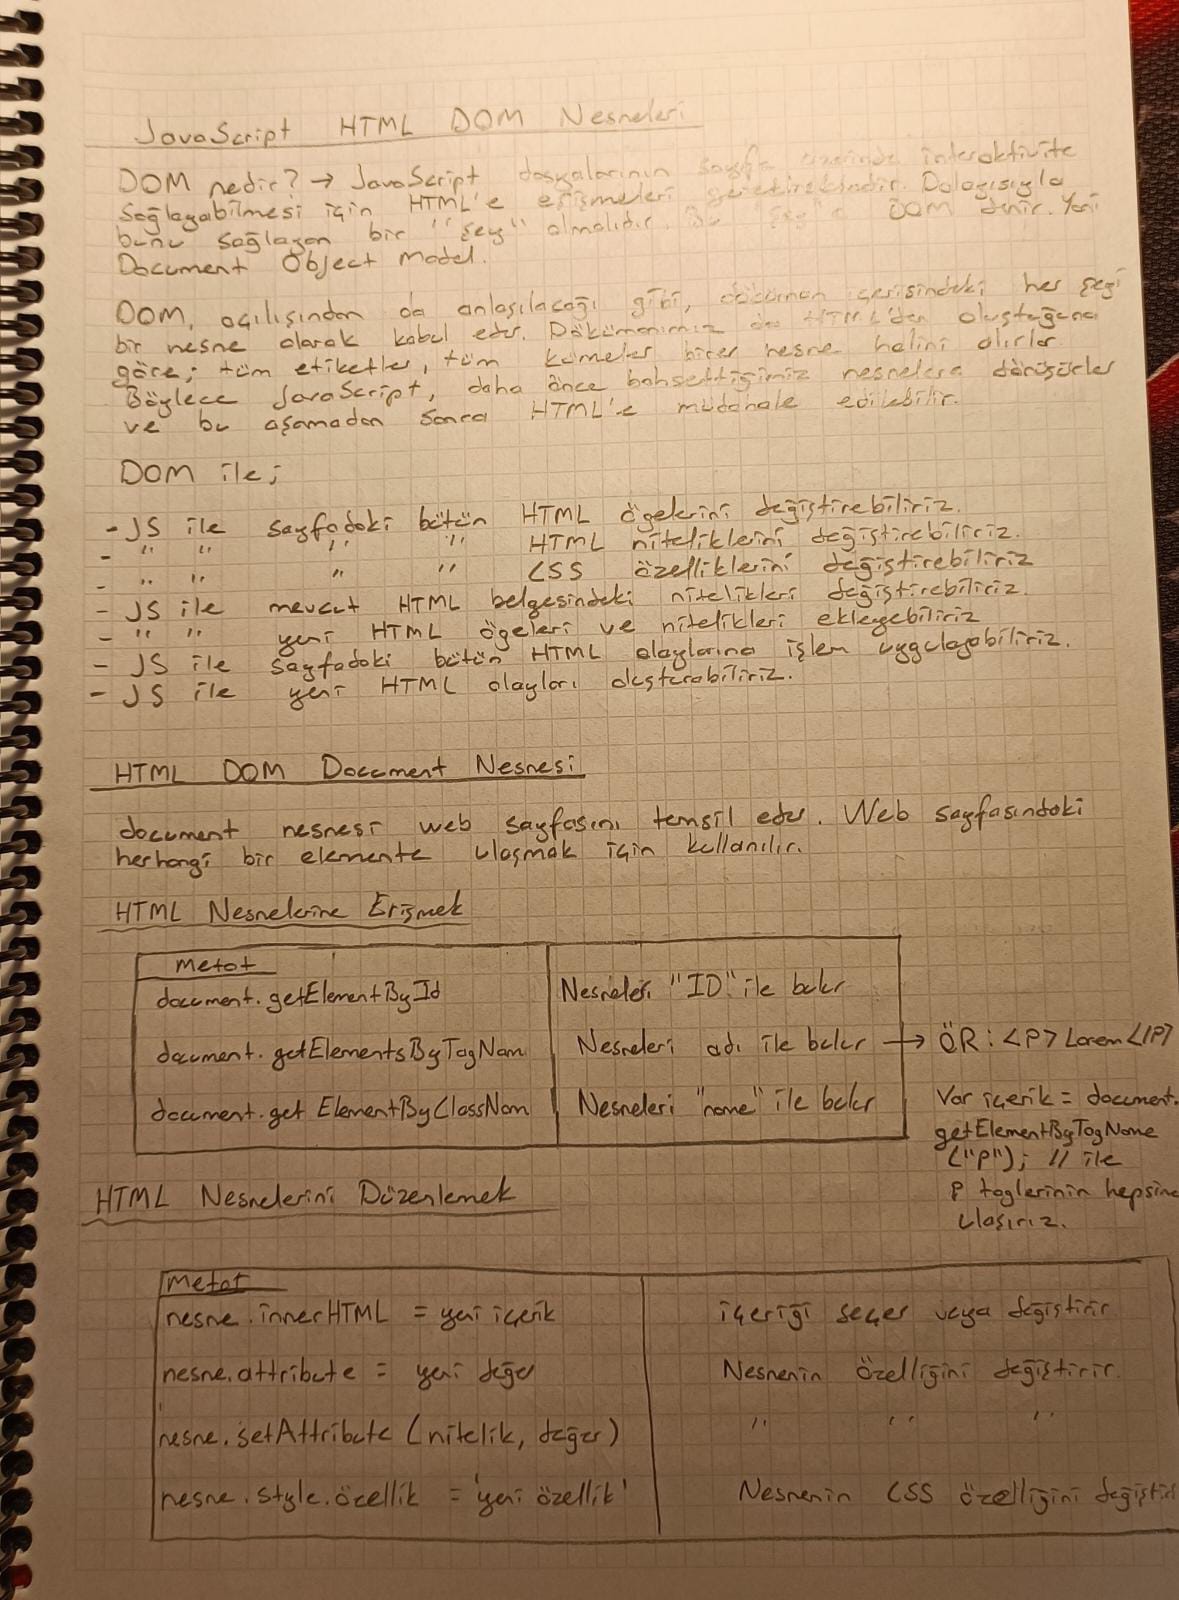 JavaScript HTML DOM Nesneleri
DOM nedir? → JavaScript dosyalarının sayfa üzerinde interaktivite
sağlayabilmesi için HTML'e erişmeleri gerekmektedir. Dolayısıyla
bunu sağlayan bir "şey" olmalıdır. Bu "şey"e DOM denir. Yani
Document Object Model.
DOM, açılışından da anlaşılacağı gibi, döküman içerisindeki her şeyi
bir nesne olarak kabul eder. Dökümanımız da HTML'den oluştuğuna
göre; tüm etiketler, tüm kümeler birer nesne halini alırlar.
Böylece JavaScript, daha önce bahsettiğimiz nesnelere dönüşürler
ve bu aşamadan sonra HTML'e müdahale edilebilir.
DOM ile;
- JS ile sayfadaki bütün HTML ögelerini değiştirebiliriz.
- " " " " HTML niteliklerini değiştirebiliriz.
- " " " " CSS özelliklerini değiştirebiliriz
- JS ile mevcut HTML belgesindeki nitelikleri değiştirebiliriz.
- " " yeni HTML ögeleri ve nitelikleri ekleyebiliriz
- JS ile sayfadaki bütün HTML olaylarına işlem uygulayabiliriz.
- JS ile yeni HTML olayları oluşturabiliriz.
HTML DOM Document Nesnesi
document nesnesi web sayfasını temsil eder. Web sayfasındaki
herhangi bir elemente ulaşmak için kullanılır.
HTML Nesnelerine Erişmek
Metot
document.getElementById Nesneleri "ID" ile bulur
document.getElementsByTagNam Nesneleri adı ile bulur → ÖR: <P> Lorem </P>
document.get ElementByClassNam Nesneleri "name" ile bulur
Var içerik = document.
getElementByTagName
("P"); // ile
P taglerinin hepsine
ulaşırız.
HTML Nesnelerini Düzenlemek
Metot
nesne.innerHTML = yeni içerik içeriği seçer veya değiştirir
nesne.attribute = yeni değer Nesnenin özelliğini değiştirir.
nesne.setAttribute (nitelik, değer) " " "
nesne.style.özellik = 'yeni özellik' Nesnenin CSS özelliğini